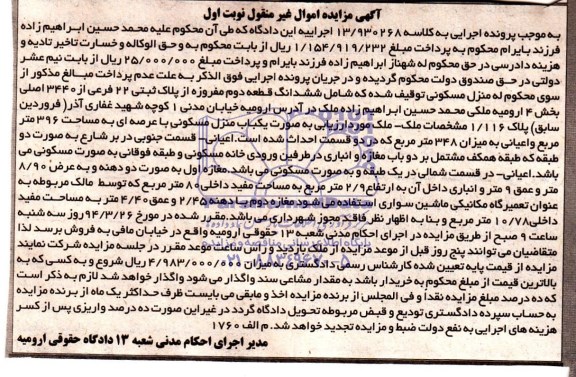 آگهی مزایده اموال غیر منقول نوبت اول
به موجب پرونده اجرایی به کلاسه ۱۳/۹۳۰۲۶۸ اجراییه این دادگاه که طی آن محکوم علیه محمد حسین ابراهیم زاده
فرزند بایرام محکوم به پرداخت مبلغ ۱/۱۵۴/۹۱۹/۲۳۲ ریال از بابت محکوم به و حق الوکاله و خسارت تاخیر تادیه و
هزینه دادرسی در حق محکوم له شهناز ابراهیم زاده فرزند بایرام و پرداخت مبلغ ۲۵/۰۰۰/۰۰۰ ریال از بابت نیم عشر
دولتی در حق صندوق دولت محکوم گردیده و در جریان پرونده اجرایی فوق الذکر به علت عدم پرداخت مبالغ مذکور از
سوی محکوم له منزل مسکونی توقیف شده که شامل ششدانگ قطعه دوم مفروزه از پلاک ثبتی ۲۲ فرعی از ۳۴۴۰ اصلی
بخش ۴ ارومیه ملکی محمد حسین ابراهیم زاده ملک در آدرس ارومیه خیابان مدنی ۱ کوچه شهید غفاری آذر( فروردین
سابق) پلاک ۱/۱۱۶ مشخصات ملک- ملک مورد ارزیابی به صورت یکباب منزل مسکونی با عرصه ای به مساحت ۳۹۶ متر
مربع واعیانی به میزان ۳۴۸ متر مربع که در دو قسمت احداث شده است. اعیانی- قسمت جنوبی در بر شارع به صورت دو
طبقه که طبقه همکف مشتمل بر دو باب مغازه و انباری در طرفین ورودی خانه مسکونی و طبقه فوقانی به صورت مسکونی می
باشد. اعیانی- در قسمت شمالی در یک طبقه و به صورت مسکونی می باشد. مغازه اول به صورت دو دهنه و به عرض ۸/۹۰
متر و عمق ۹ متر و انباری داخل آن به ارتفاع ۲/۹ متر مربع به مساحت مفید داخلی ۸۰ متر مربع که توسط مالک مربوطه به
عنوان تعمیرگاه مکانیکی ماشین سواری استفاده می شود مغازه دوم با دهنه ۲/۴۵ و عمق ۴/۴۰ متر به مساحت مفید
داخلی ۱۰/۷۸ متر مربع و بنا به اظهار نظر فاقد مجوز شهرداری می باشد. مقرر شده در مورخ ۹۴/۳/۲۶ روز سه شنبه
ساعت ۹ صبح از طریق مزایده در اجرای احکام مدنی شعبه ۱۳ حقوقی ارومیه واقع در خیابان مافی به فروش برسد لذا
متقاضیان می توانند پنج روز قبل از موعد مزایده از ملک بازدید و راس ساعت موعد مقرر در جلسه مزایده شرکت نمایند
مزایده از قیمت پایه تعیین شده کارشناس رسمی دادگستری به میزان ۴/۹۸۳/۰۰۰/۰۰۰ ریال شروع و به کسی که به
بالاترین قیمت از مبلغ محکوم به خریدار باشد به مقدار مشاعی سند واگذار می شود واگذار خواهد شد لازم به ذکر است
که ده درصد مبلغ مزایده نقدا و فی المجلس از برنده مزایده اخذ و مابقی می بایست ظرف حداکثر یک ماه از برنده مزایده
به حساب سپرده دادگستری تودیع و قبض مربوطه تحویل دادگاه گردد در غیر این صورت ده درصد واریزی پس از کسر
هزینه های اجرایی به نفع دولت ضبط و مزایده تجدید خواهد شد. م الف ۱۷۶۰
مدیر اجرای احکام مدنی شعبه ۱۳ دادگاه حقوقی ارومیه